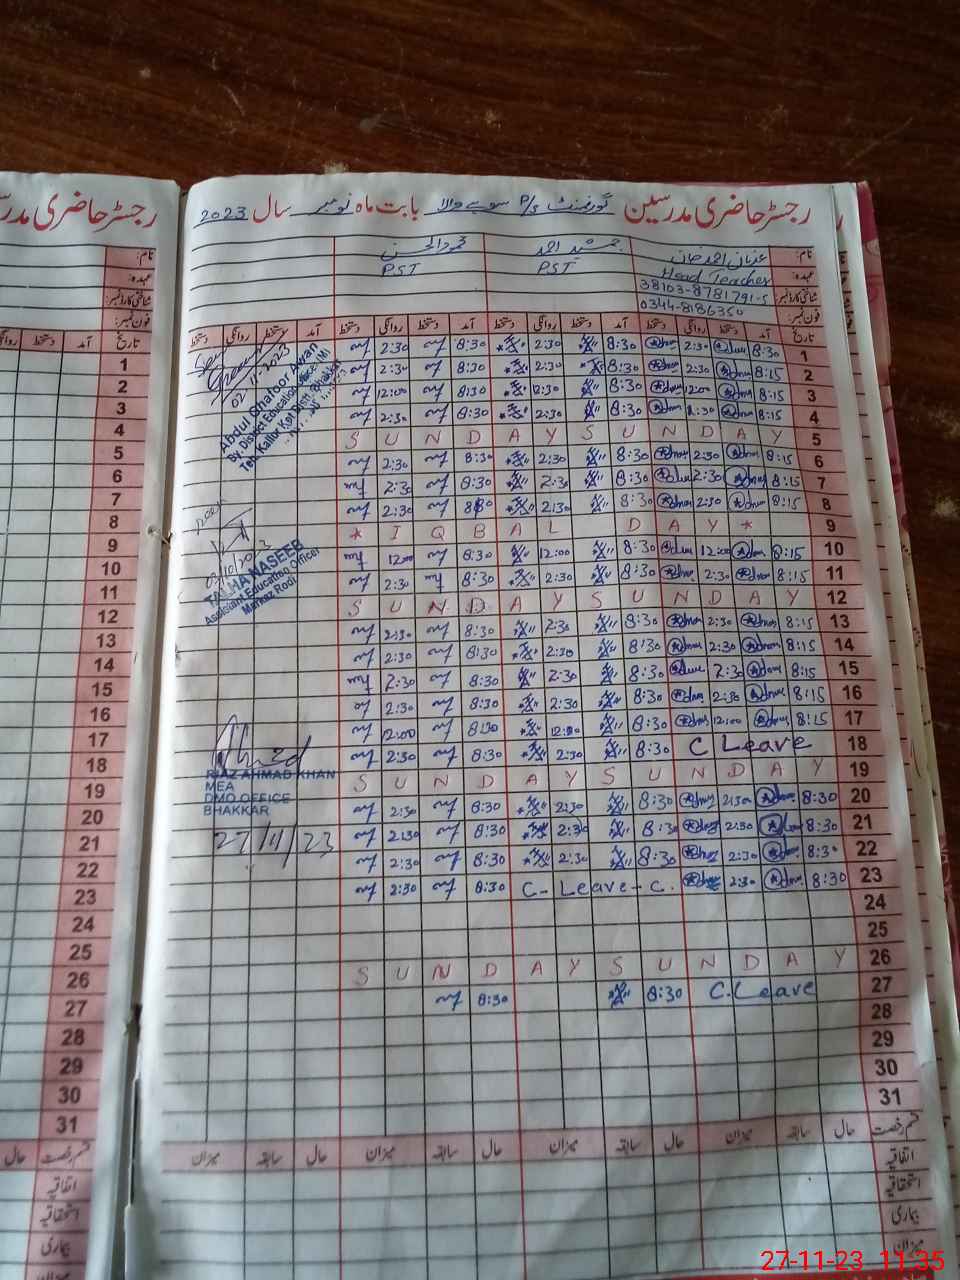 رجسٹر حاضری مدرسین گورنمنٹ P/s سوبے والا بابت ماہ نومبر سال 2023
نام: عدنان احمد خان جمشید احمد محمود الحسن
عہدہ: Head Teacher PST PST
شناختی کارڈ نمبر: 38103-8781791-5
فون نمبر: 0344-8186350
تاریخ آمد دستخط روانگی دستخط آمد دستخط روانگی دستخط آمد دستخط روانگی دستخط آمد دستخط روانگی دستخط
1 8:30 2:30 8:30 2:30 8:30 2:30
2 8:15 2:30 8:30 2:30 8:30 2:30
3 8:15 12:00 8:30 12:30 8:30 12:00
4 8:15 2:30 8:30 2:30 8:30 2:30
5 S U N D A Y S U N D A Y
6 8:15 2:30 8:30 2:30 8:30 2:30
7 8:15 2:30 8:30 2:30 8:30 2:30
8 8:15 2:30 8:30 2:30 8:30 2:30
9 * I Q B A L D A Y *
10 8:15 12:00 8:30 12:00 8:30 12:00
11 8:15 2:30 8:30 2:30 8:30 2:30
12 S U N D A Y S U N D A Y
13 8:15 2:30 8:30 2:30 8:30 2:30
14 8:15 2:30 8:30 2:30 8:30 2:30
15 8:15 2:30 8:30 2:30 8:30 2:30
16 8:15 2:30 8:30 2:30 8:30 2:30
17 8:15 12:00 8:30 12:00 8:30 12:00
18 C Leave 8:30 2:30 8:30 2:30
19 S U N D A Y S U N D A Y
20 8:30 2:30 8:30 2:30 8:30 2:30
21 8:30 2:30 8:30 2:30 8:30 2:30
22 8:30 2:30 8:30 2:30 8:30 2:30
23 8:30 2:30 C- Leave - C. 8:30 2:30
24
25
26 S U N D A Y S U N D A Y
27 C. Leave 8:30 8:30
28
29
30
31
قسم رخصت حال سابقہ میزان حال سابقہ میزان حال سابقہ میزان
اتفاقیہ
استحقاقیہ
بیماری
میزان
02-11-2023
Abdul Ghafoor Awan
Dy. District Education Officer (M)
Teh. Kallor Kot Distt. Bhakkar
03/10/2023
TALHA NASEER
Assistant Education Officer
Markaz Rodi
RIAZ AHMAD KHAN
MEA
DMO OFFICE
BHAKKAR
27/11/23
رجسٹر حاضری مدر
نام:
عہدہ:
شناختی کارڈ نمبر:
فون نمبر:
تاریخ آمد دستخط روانگی
1
2
3
4
5
6
7
8
9
10
11
12
13
14
15
16
17
18
19
20
21
22
23
24
25
26
27
28
29
30
31
قسم رخصت حال
اتفاقیہ
استحقاقیہ
بیماری
میزان
27-11-23 11:35